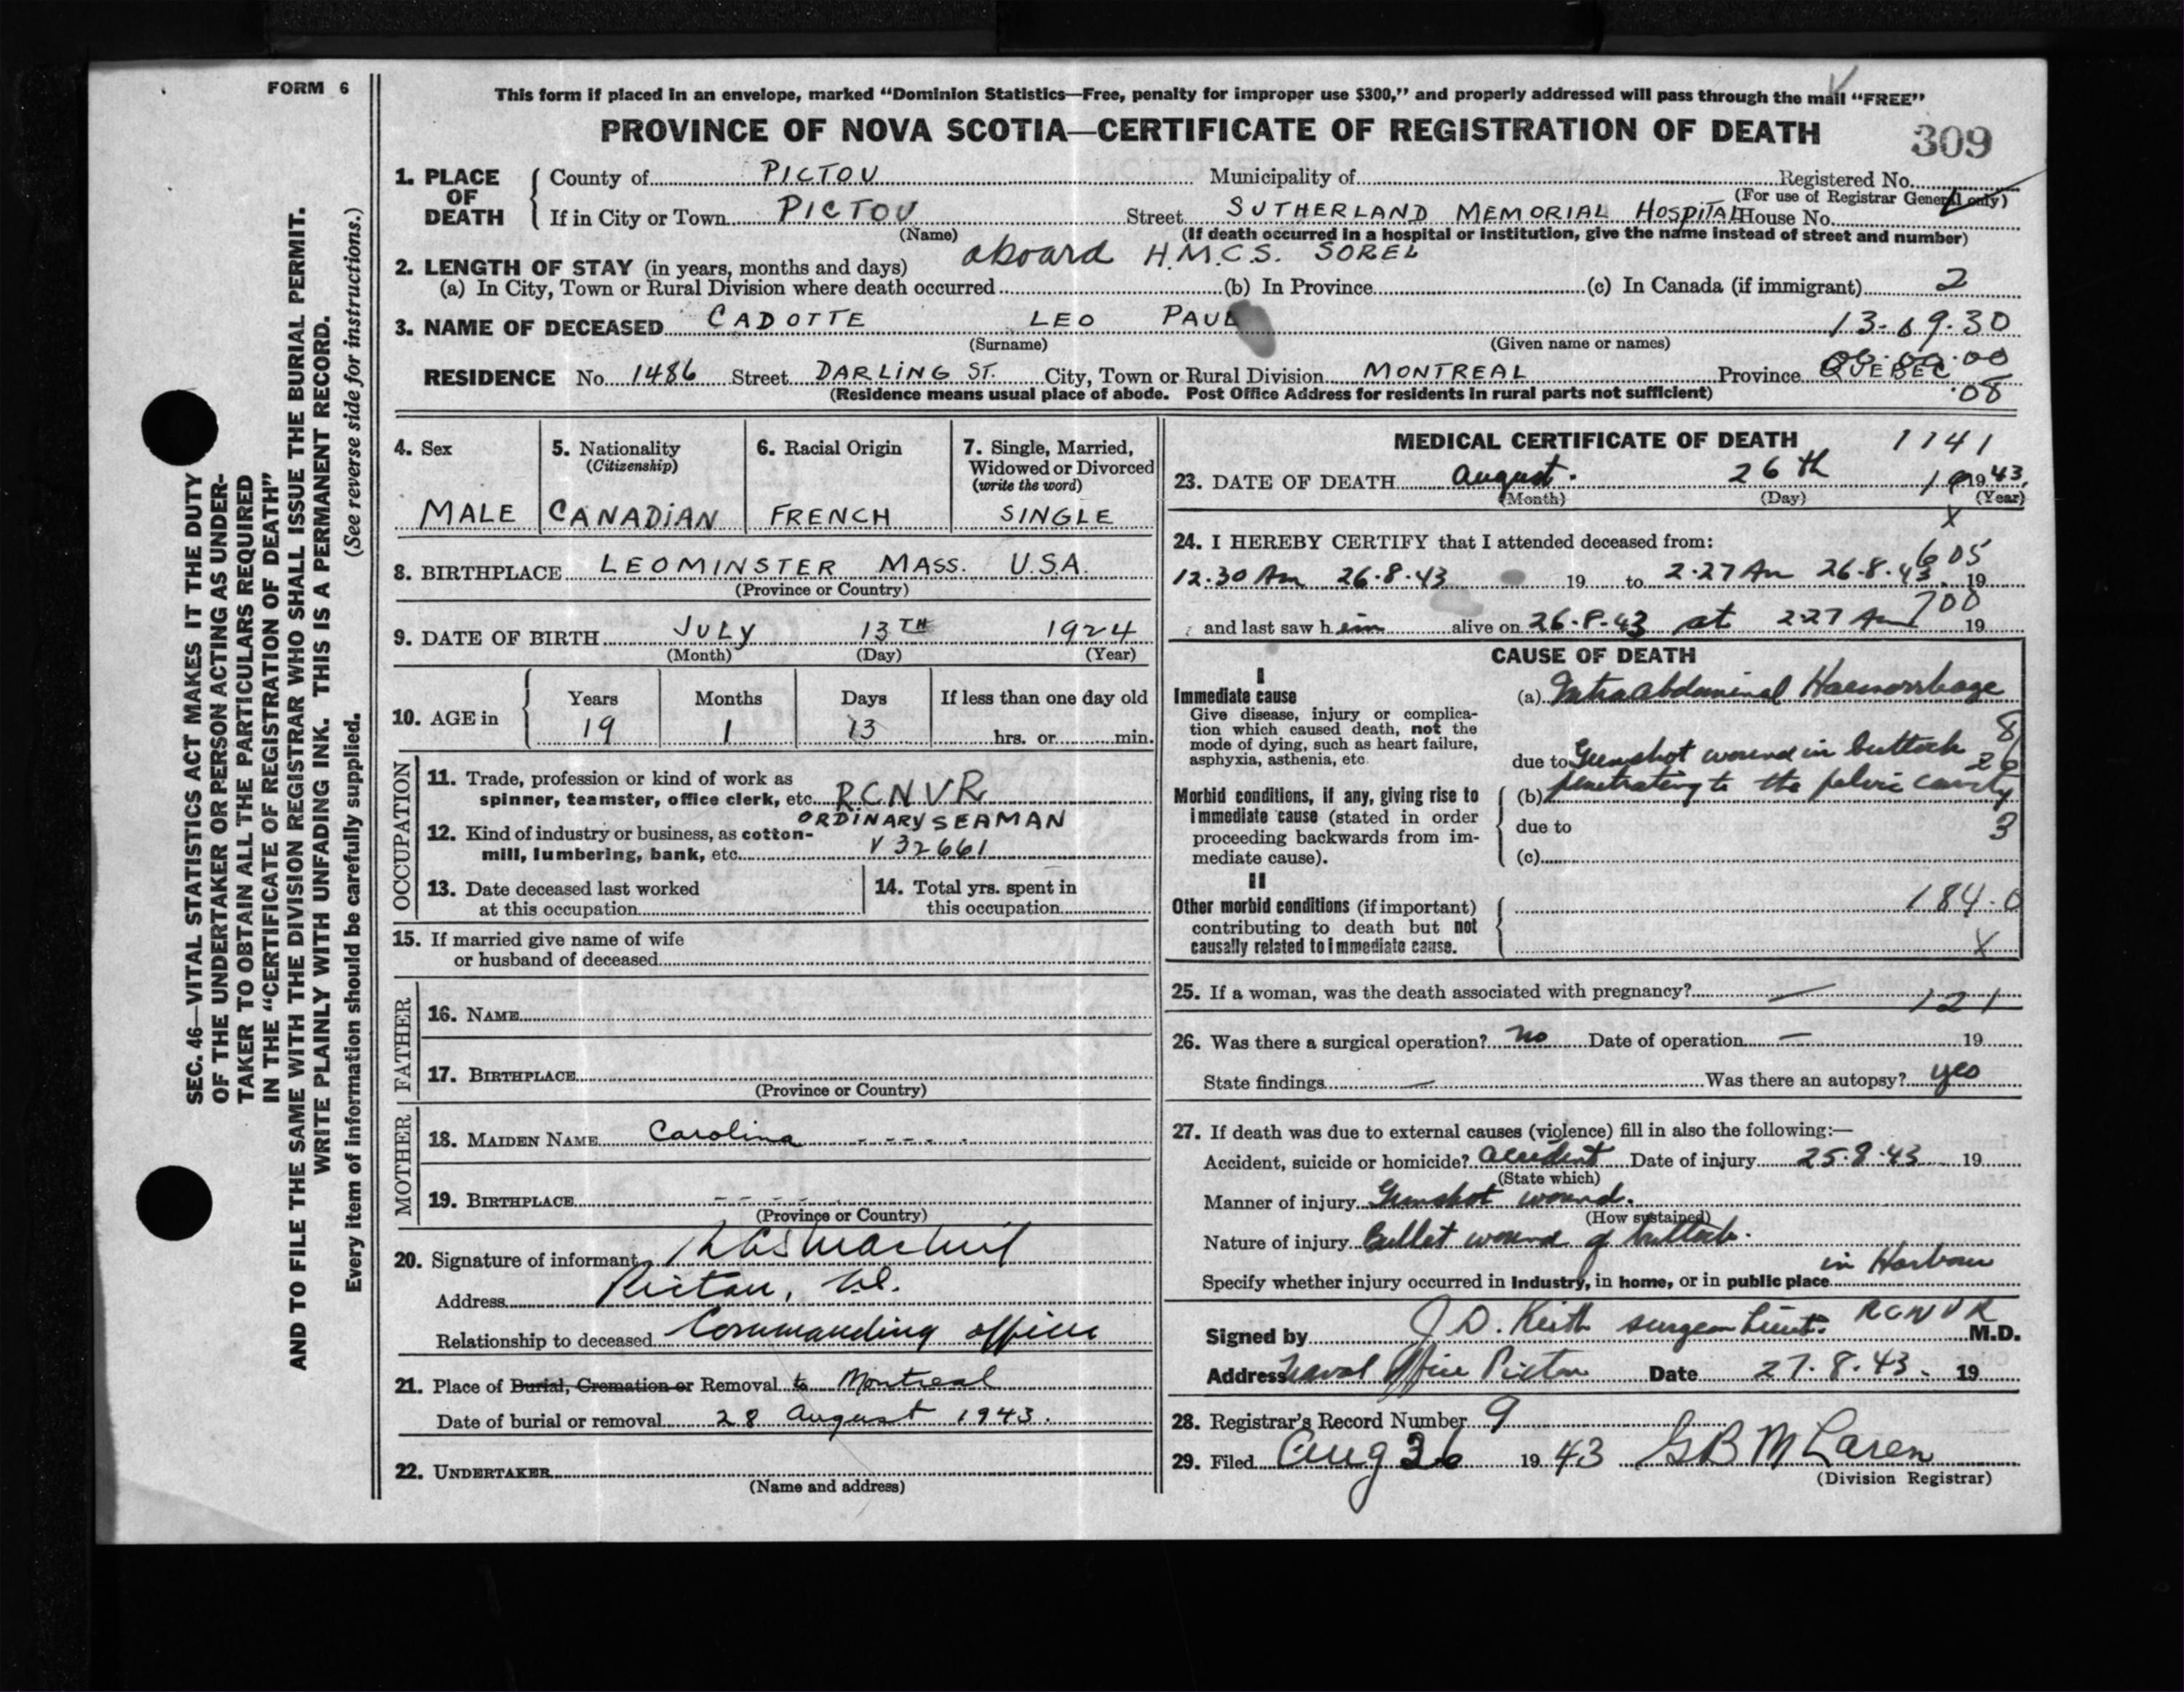 FORM 6
This form if placed in an envelope, marked "Dominion Statistics—Free, penalty for improper use $300," and properly addressed will pass through the mail "FREE"
PROVINCE OF NOVA SCOTIA—CERTIFICATE OF REGISTRATION OF DEATH
309
1. PLACE OF DEATH
County of PICTOU Municipality of Registered No.
(For use of Registrar General only)
If in City or Town PICTOU Street SUTHERLAND MEMORIAL HOSPITAL House No.
(Name) (If death occurred in a hospital or institution, give the name instead of street and number)
aboard H.M.C.S. SOREL
2. LENGTH OF STAY (in years, months and days)
(a) In City, Town or Rural Division where death occurred (b) In Province (c) In Canada (if immigrant) 2
3. NAME OF DECEASED CADOTTE LEO PAUL
(Surname) (Given name or names)
RESIDENCE No. 1486 Street DARLING ST. City, Town or Rural Division MONTREAL Province QUEBEC
08
(Residence means usual place of abode. Post Office Address for residents in rural parts not sufficient)
4. Sex
MALE
5. Nationality
(Citizenship)
CANADIAN
6. Racial Origin
FRENCH
7. Single, Married,
Widowed or Divorced
(write the word)
SINGLE
8. BIRTHPLACE LEOMINSTER MASS. U.S.A.
(Province or Country)
9. DATE OF BIRTH JULY 13TH 1924
(Month) (Day) (Year)
10. AGE in
Years Months Days If less than one day old
19 1 13 hrs. or min.
OCCUPATION
11. Trade, profession or kind of work as
spinner, teamster, office clerk, etc. RCNVR
ORDINARY SEAMAN
12. Kind of industry or business, as cotton-
mill, lumbering, bank, etc. V 32661
13. Date deceased last worked
at this occupation
14. Total yrs. spent in
this occupation
15. If married give name of wife
or husband of deceased
FATHER
16. NAME
17. BIRTHPLACE
(Province or Country)
MOTHER
18. MAIDEN NAME Carolina - - - -
19. BIRTHPLACE - - - - -
(Province or Country)
20. Signature of informant
Address Pictou, N.S.
Relationship to deceased Commanding officer
21. Place of Burial, Cremation or Removal to Montreal
Date of burial or removal 28 August 1943.
22. UNDERTAKER
(Name and address)
MEDICAL CERTIFICATE OF DEATH 1141
23. DATE OF DEATH August. 26th 1943,
(Month) (Day) (Year)
X
24. I HEREBY CERTIFY that I attended deceased from:
605
12.30 Am 26.8.43 19 to 2.27 Am 26.8.43. 19
700
and last saw him alive on 26.8.43 at 2.27 Am 19
CAUSE OF DEATH
I
Immediate cause
Give disease, injury or complica-
tion which caused death, not the
mode of dying, such as heart failure,
asphyxia, asthenia, etc.
(a) Intraabdominal Haemorrhage
8
due to Gunshot wound in buttock 26
Morbid conditions, if any, giving rise to
immediate cause (stated in order
proceeding backwards from im-
mediate cause).
(b) penetrating to the pelvic cavity
due to 3
(c)
II
Other morbid conditions (if important)
contributing to death but not
causally related to immediate cause.
184.0
X
25. If a woman, was the death associated with pregnancy? — 121
26. Was there a surgical operation? No Date of operation — 19
State findings — Was there an autopsy? yes
27. If death was due to external causes (violence) fill in also the following:—
Accident, suicide or homicide? accident Date of injury 25.8.43 19
(State which)
Manner of injury Gunshot wound.
(How sustained)
Nature of injury Bullet wound of buttock.
Specify whether injury occurred in Industry, in home, or in public place in Harbour
Signed by J D. Keith surgeon Lieut. RCNVR M.D.
Address Naval Office Pictou Date 27.8.43. 19
28. Registrar's Record Number 9
29. Filed Aug 26 1943 G B McLaren
(Division Registrar)
SEC. 46—VITAL STATISTICS ACT MAKES IT THE DUTY
OF THE UNDERTAKER OR PERSON ACTING AS UNDER-
TAKER TO OBTAIN ALL THE PARTICULARS REQUIRED
IN THE "CERTIFICATE OF REGISTRATION OF DEATH"
AND TO FILE THE SAME WITH THE DIVISION REGISTRAR WHO SHALL ISSUE THE BURIAL PERMIT.
WRITE PLAINLY WITH UNFADING INK. THIS IS A PERMANENT RECORD.
Every item of information should be carefully supplied. (See reverse side for instructions.)